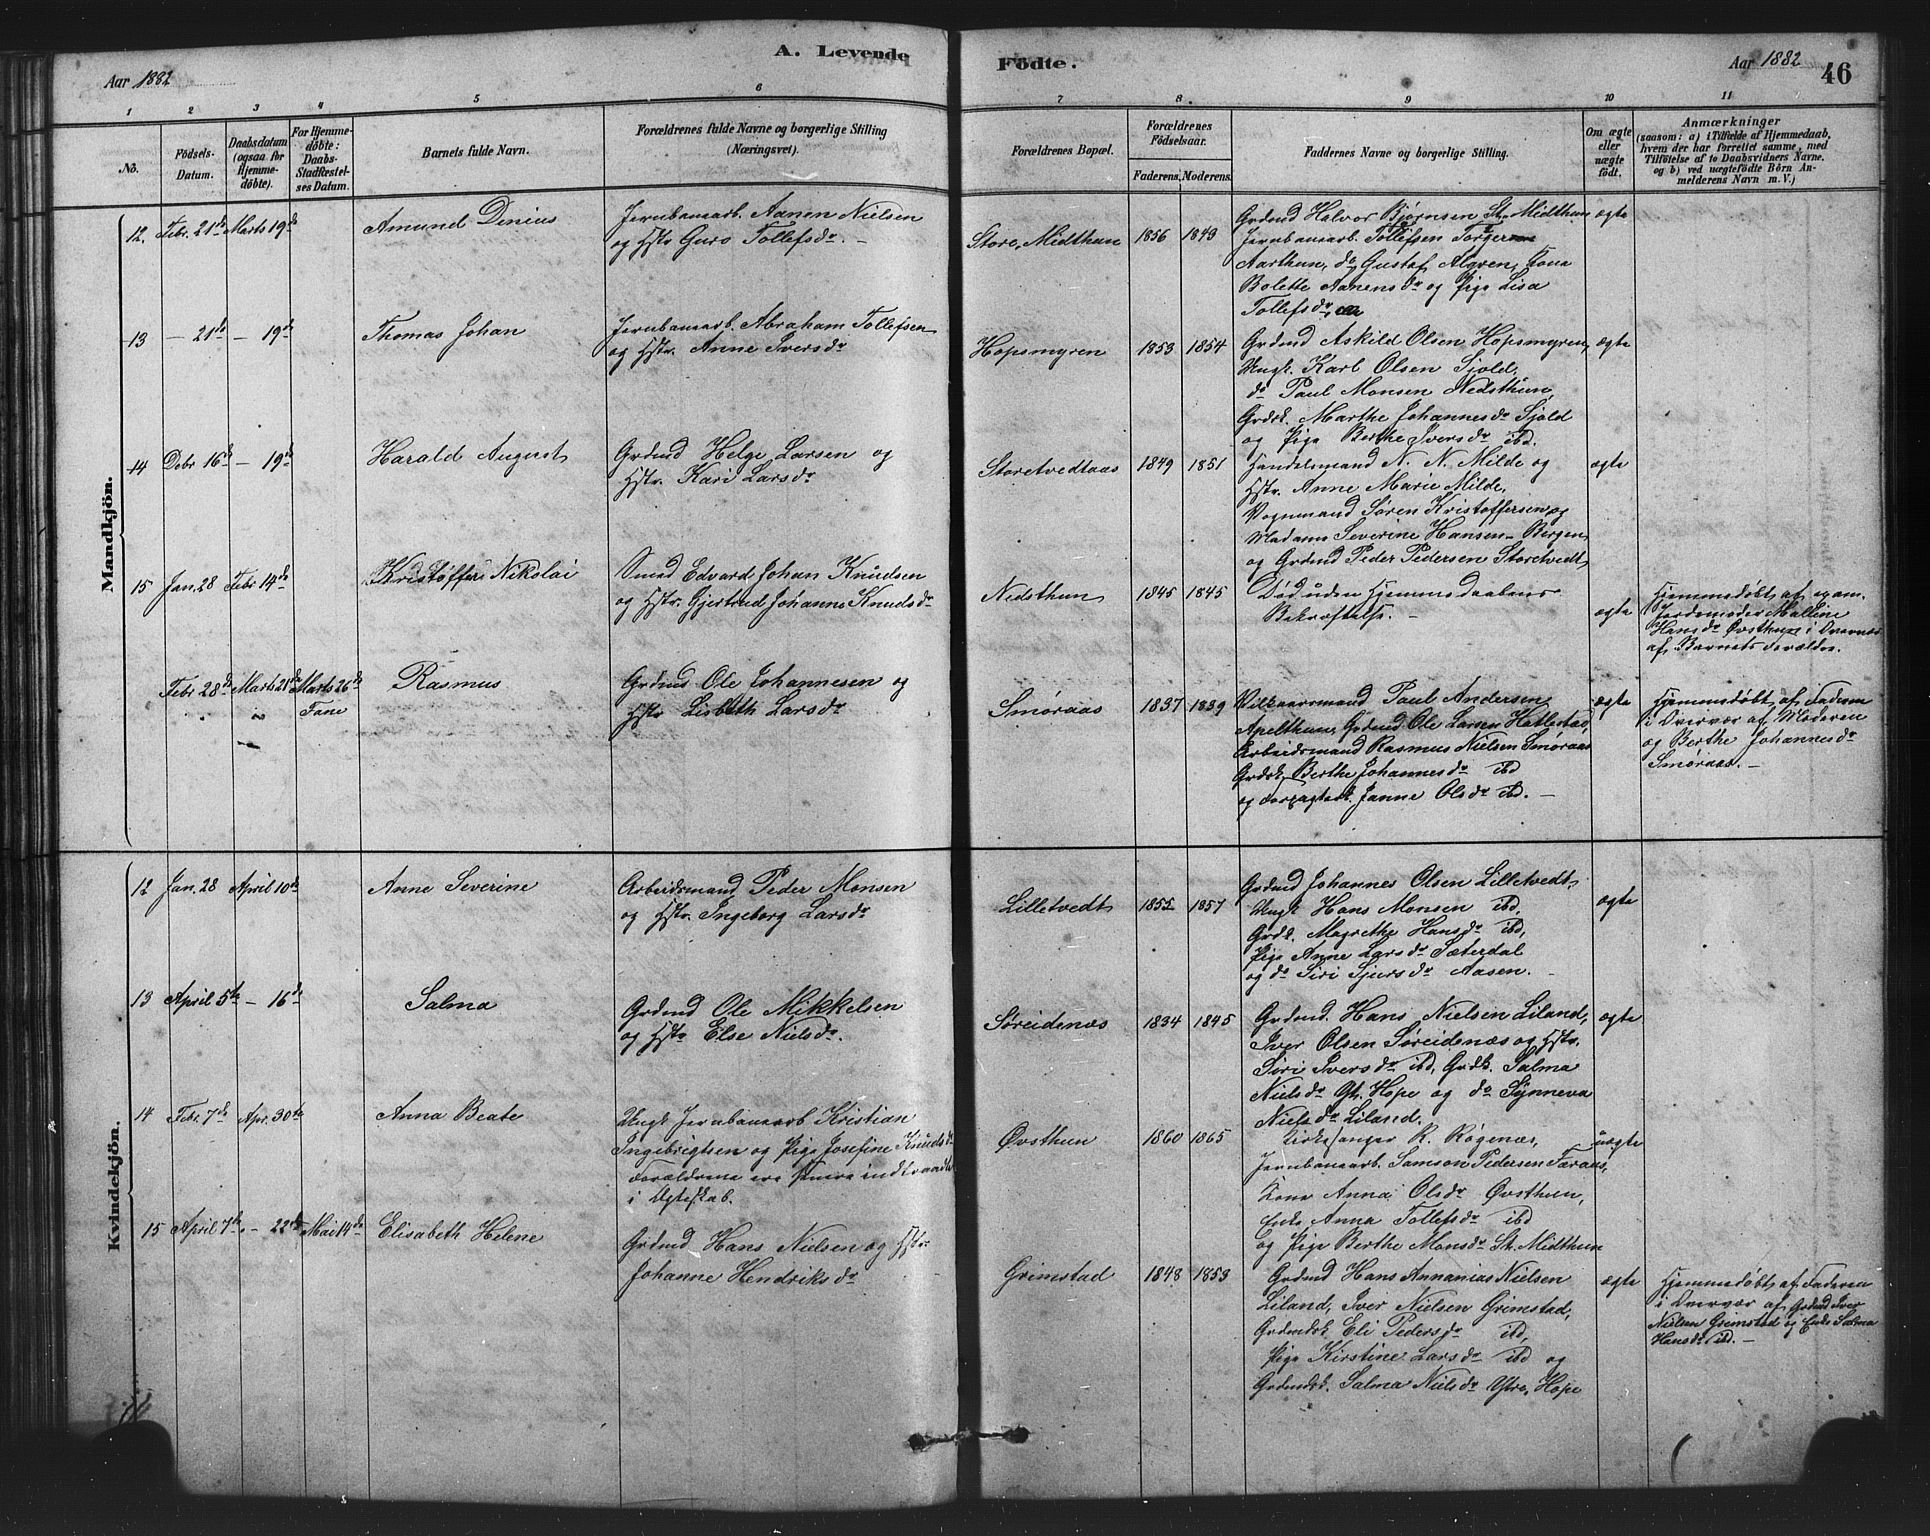 A. Levende
Födte.
Aar 1882
Aar 1882
46
1 2 3 4 5 6
7 8 9 10 11
No.
Födsels-Datum.
Daabsdatum (ogsaa for Hjemme-döbte).
For Hjemme-döbte: Daabs-Stadfæstel-ses Datum.
Barnets fulde Navn.
Forældrenes fulde Navne og borgerlige Stilling (Næringsvei).
Forældrenes Bopæl.
Forældrenes Födselsaar.
Faderens. Moderens.
Faddernes Navne og borgerlige Stilling.
Om ægte eller uægte födt.
Anmærkninger
(saasom: a) i Tilfælde af Hjemmedaab, hvem der har forrettet samme, med Tilföielse af to Daabsvidners Navne, og b) ved uægtefödte Börn An-melderens Navn m. V.)
Mandkjön.
12. Febr. 21de Marts 19de Amund Denius
Jernbanearb. Aanen Nielsen
og Hstr Guro Tollefsdr. –
Store Midthun 1856 1849
Grdmd Halvor Bjørnsen St. Midthun ægte
Jernbanearb. Tollefsen
Aarthun, do Gustaf Algren, Kone
Bolette Aanensdr og Pige Lisa
Tollefsdr
13 – 21de – 19de Thomas Johan
Jernbanearb. Abraham Tollefsen
og Hstr. Anne Iversdr
Hopsmyren 1853 1854
Grdmd Askild Olsen Hopsmyren, ægte
Ungk. Karl Olsen Sjold,
do Paul Monsen Nedsthun,
Grdk. Marthe Johannesdr Sjold
og Pige Berthe Iversdr ibd.
14 Debr 16de – 19de Harald August
Grdmd Helge Larsen og
Hstr. Kari Larsdr
Storetvedtaas 1849 1851
Handelsmand N. N. Milde og ægte
Hstr. Anne Marie Milde,
Vognmand Søren Kristoffersen og
Madame Severine Hansen – Bergen
og Grdmd Peder Pedersen Storetvedt
15 Jan. 28 Febr 14de Kristoffer Nikolai
Smed Edvard Johan Knudsen
og Hstr. Gjertrud Johanne Knudsdr
Nedsthun 1845 1845
Død uden Hjemmedaabens
Bekræftelse. –
ægte
Hjemmedøbt af exam.
Jordemoder Malline
Hansdr Øvsthun i Overvær
af Barnets Forældre.
Febr 28de Marts 21de Marts 26de Rasmus
Fane
Grdmd Ole Johannesen og
Hstr Lisbeth Larsdr
Smøraas 1837 1839
Vilkaarsmand Paul Andersen ægte
Apelthun, Grdmd Ole Larsen Hatlestad,
Arbeidsmand Rasmus Nielsen Smøraas
Grdk. Berthe Johannesdr ibd
og Forpagterk. Janne Olsdr ibd. –
Hjemmedøbt af Faderen
i Overvær af Moderen
og Berthe Johannesdr
Smøraas. –
Kvindekjön.
12 Jan. 28 April 10de Anne Severine
Arbeidsmand Peder Monsen
og Hstr. Ingeborg Larsdr
Lilletvedt 1855 1857
Grdmd Johannes Olsen Lilletvedt, ægte
Ungk Hans Monsen ibd,
Grdk. Magrethe Hansdr ibd,
Pige Anne Larsdr Sæterdal
og do Siri Sjursdr Aasen. –
13 April 5te – 16de Salma
Grdmd Ole Mikkelsen
og Hstr Else Nielsdr.
Søreidenæs 1834 1845
Grdmd. Hans Nielsen Liland, ægte
Iver Olsen Søreidenæs og Hstr.
Siri Iversdr ibd, Grdk. Salma
Nielsdr Yt. Hope og do Synneva
Nielsdr Liland.
14 Febr. 7de Apr. 30te Anna Beate
Ungk Jernbanearb Kristian
Ingebrigtsen og Pige Josefine Knudsdr
Forældrene ere senere indtraadt
i Ægteskab.
Øvsthun 1860 1865
Kirkesanger R. Røgenæs, uægte
Jernbanearb. Samson Pedersen Faraas,
Kone Anna Olsdr Øvsthun,
Enke Anna Tollefsdr ibd
og Pige Berthe Monsdr St. Midthun
15 April 7de – 22de Mai 14de Elisabeth Helene
Grdmd Hans Nielsen og Hstr.
Johanne Hendriksdr
Grimstad 1848 1853
Grdmd Hans Annanias Nielsen ægte
Liland, Iver Nielsen Grimstad,
Grdmdsk. Eli Pedersdr ibd,
Pige Kirstine Larsdr ibd og
Grdmdsk. Salma Nielsdr Ytre Hope
Hjemmedøbt af Faderen
i Overvær af Grdmd Iver
Nielsen Grimstad og Enke Salma
Hansdr ibd. –